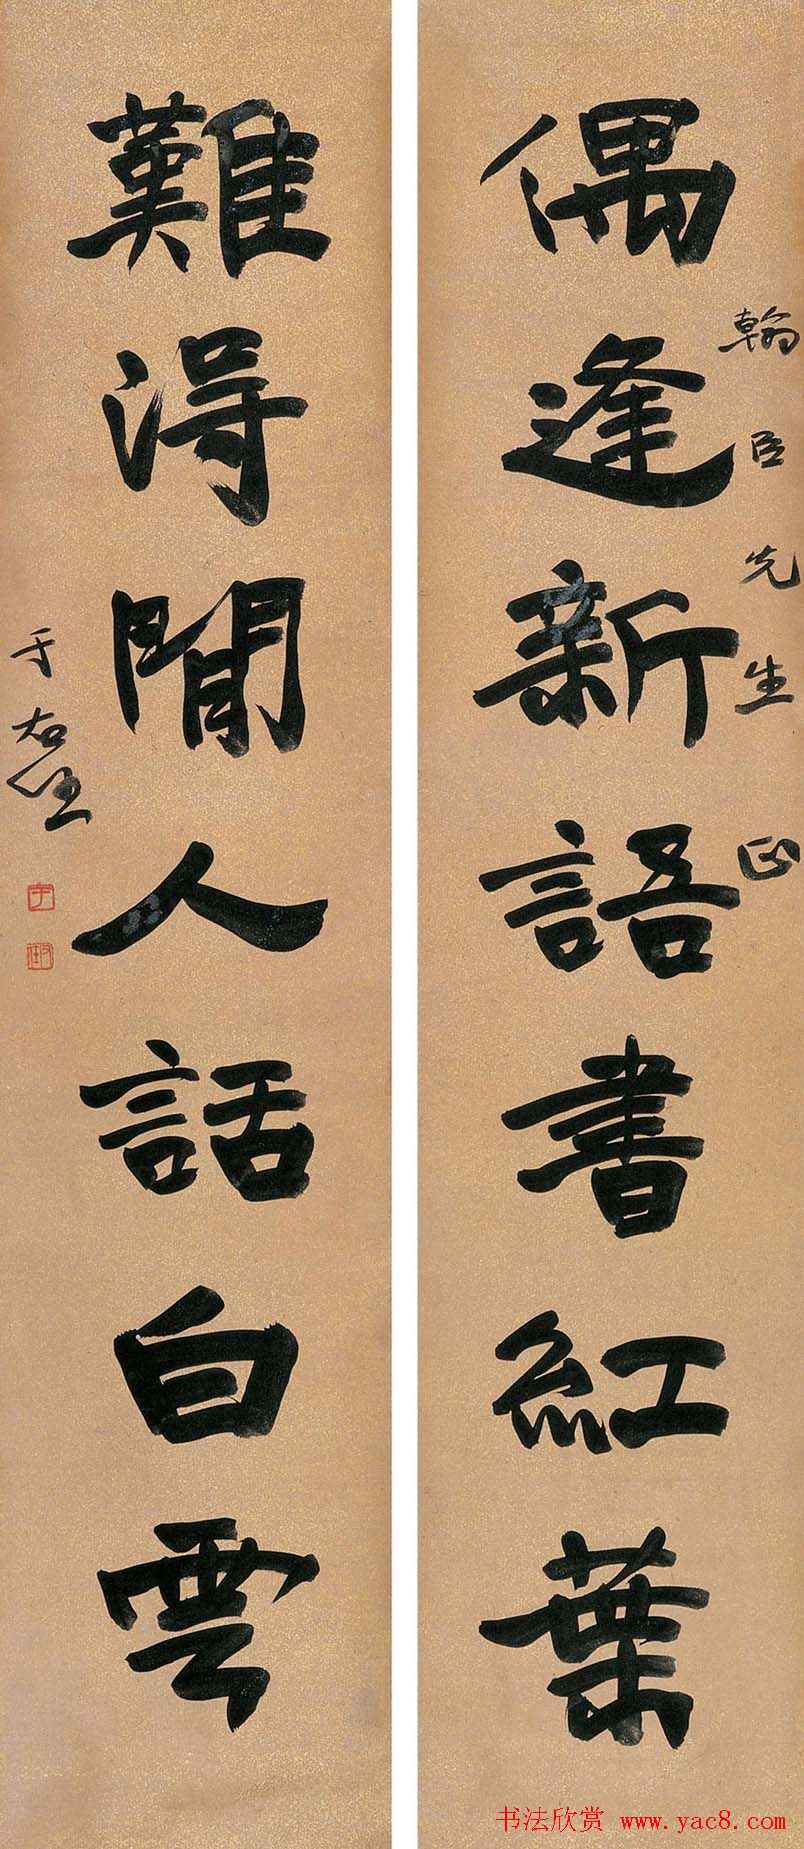 偶逢新語書紅葉
翰臣先生正
難得閒人話白雲
于右任
书法欣赏 www.yac8.com